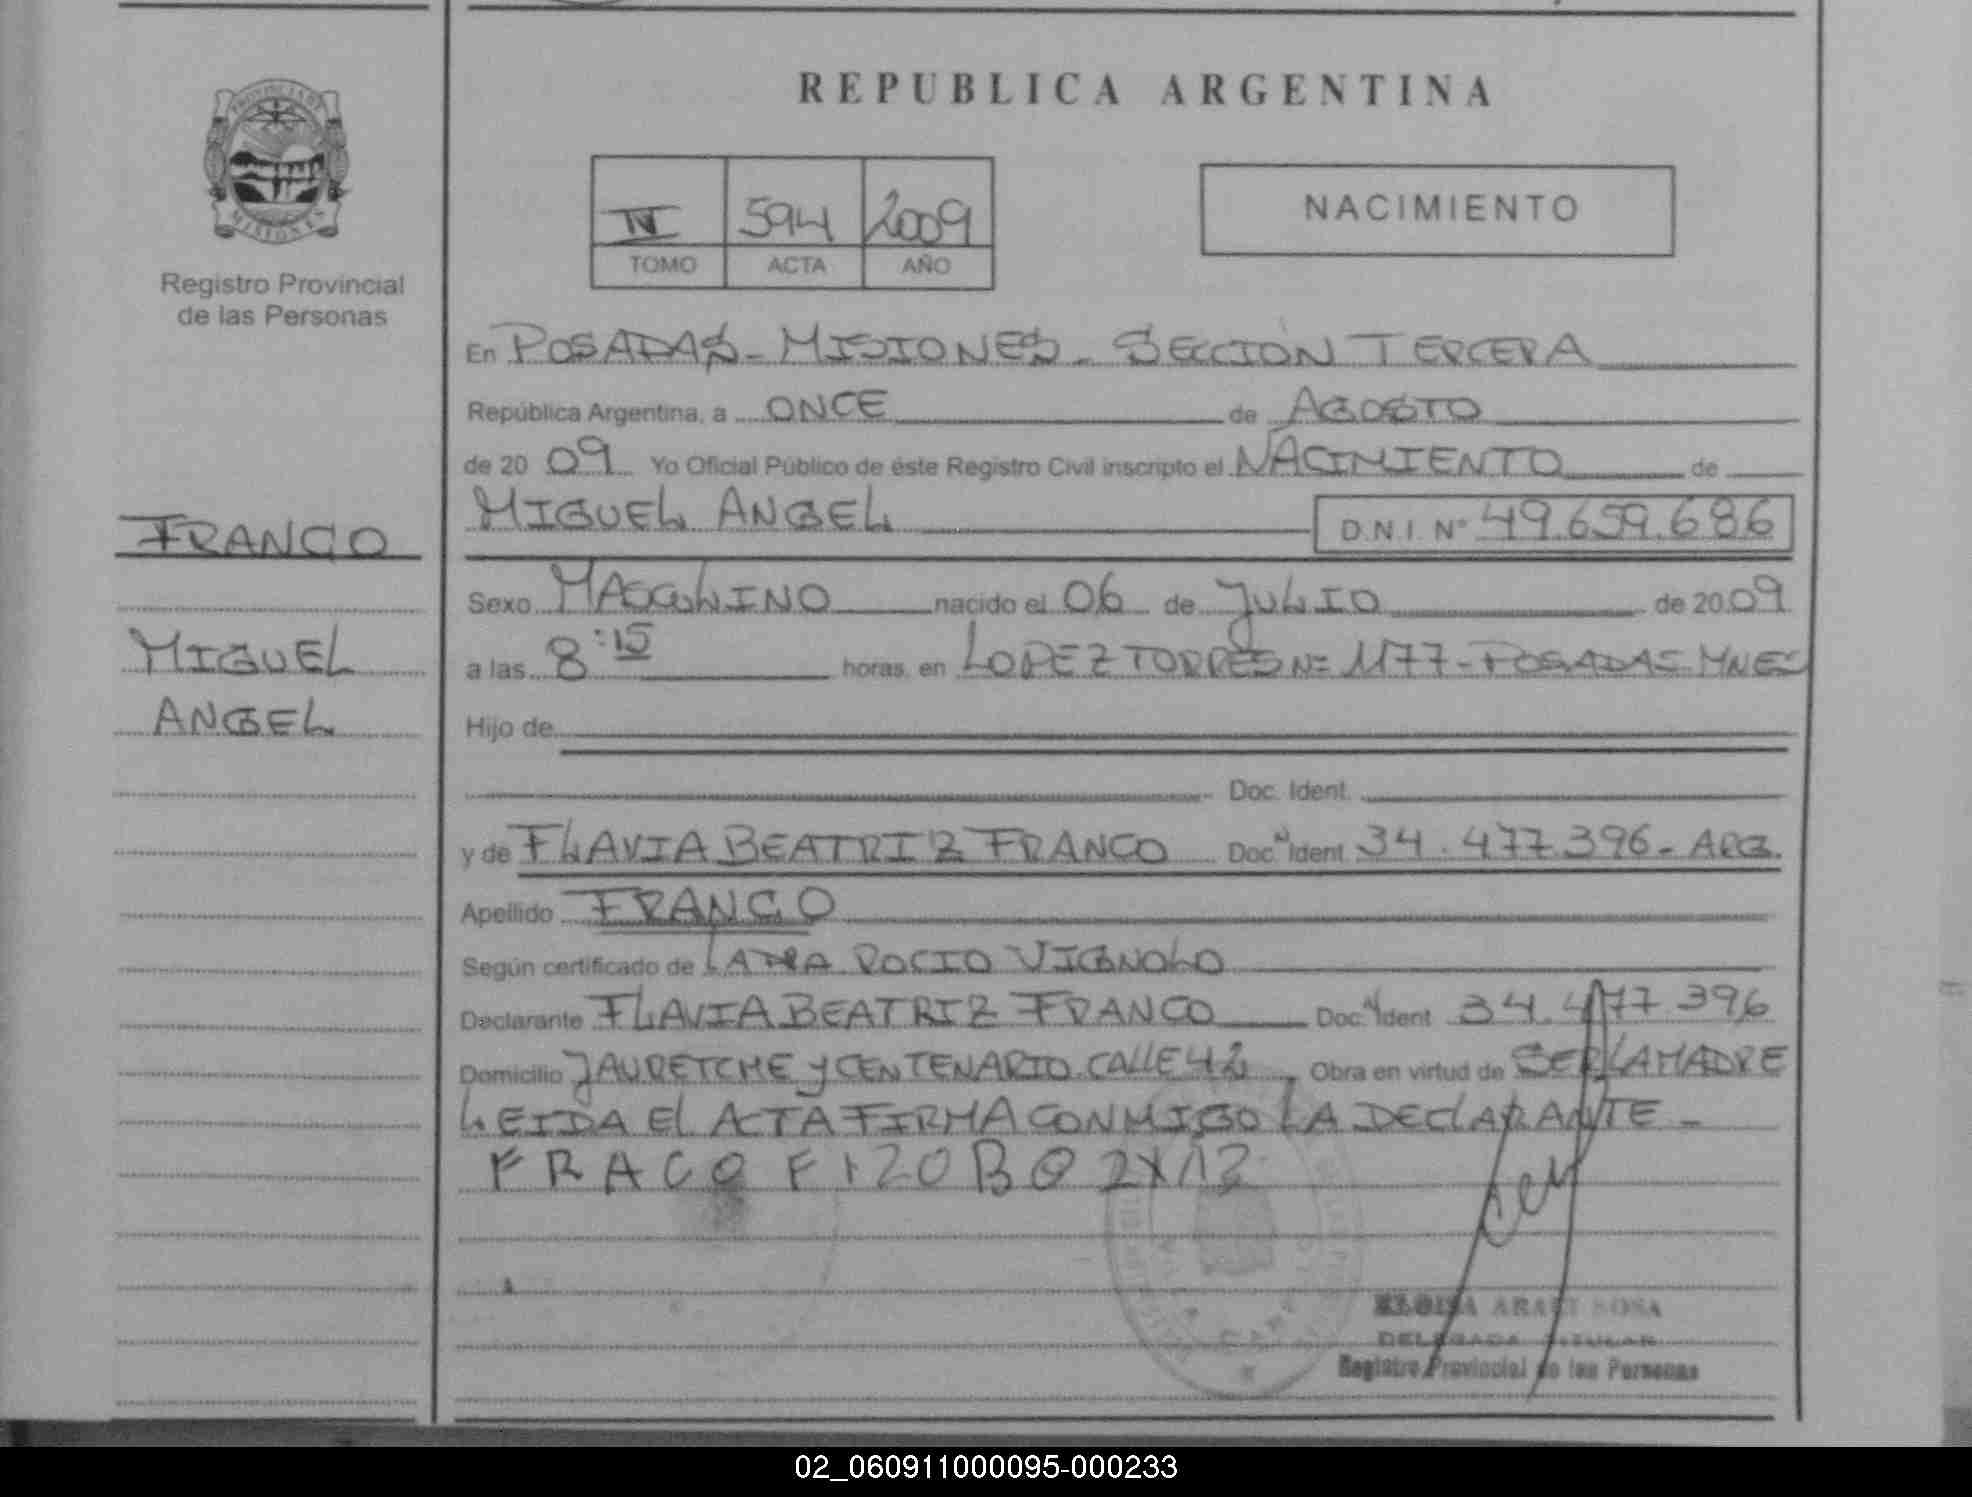 REPUBLICA ARGENTINA
PROVINCIA DE
MISIONES
Registro Provincial
de las Personas
IV 594 2009
TOMO ACTA AÑO
NACIMIENTO
En POSADAS - MISIONES - SECCION TERCERA
República Argentina, a ONCE de AGOSTO
de 20 09 Yo Oficial Público de éste Registro Civil inscripto el NACIMIENTO de
MIGUEL ANGEL D.N.I. Nº 49.659.686
FRANCO
MIGUEL
ANGEL
Sexo MASCULINO nacido el 06 de JULIO de 20 09
a las 8:15 horas, en LOPEZ TORRES Nº 1177 - POSADAS MNES
Hijo de
Doc. Ident.
y de FLAVIA BEATRIZ FRANCO Doc. Ident. 34.477.396 - ARG.
Apellido FRANCO
Según certificado de ROCIO VIGNOLO
Declarante FLAVIA BEATRIZ FRANCO Doc. Ident 34.477.396
Domicilio JAURETCHE Y CENTENARIO CALLE 42 Obra en virtud de SER LA MADRE
LEIDA EL ACTA FIRMA CONMIGO LA DECLARANTE -
FRACO
SOSA
DELEGADA TITULAR
Registro Provincial de las Personas
02_060911000095-000233